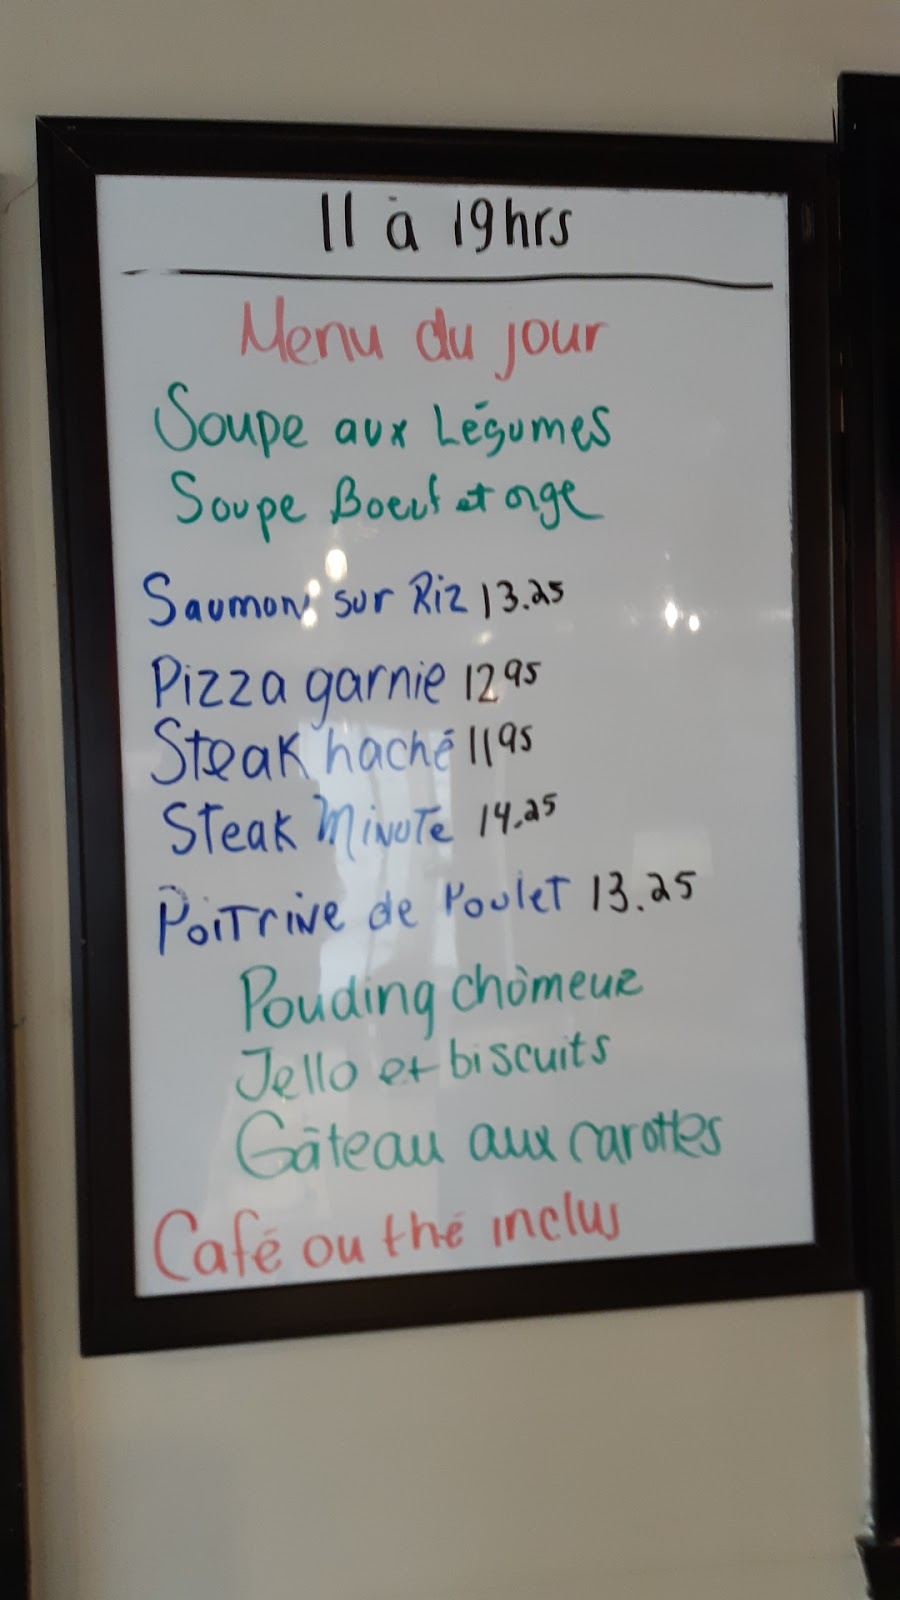 11 à 19hrs
Menu du jour
Soupe aux Légumes
Soupe Boeuf et orge
Saumon sur Riz 13.25
Pizza garnie 12 95
Steak haché 11 95
Steak Minute 14.25
Poitrine de Poulet 13.25
Pouding chômeur
Jello et biscuits
Gâteau aux carottes
Café ou thé inclus